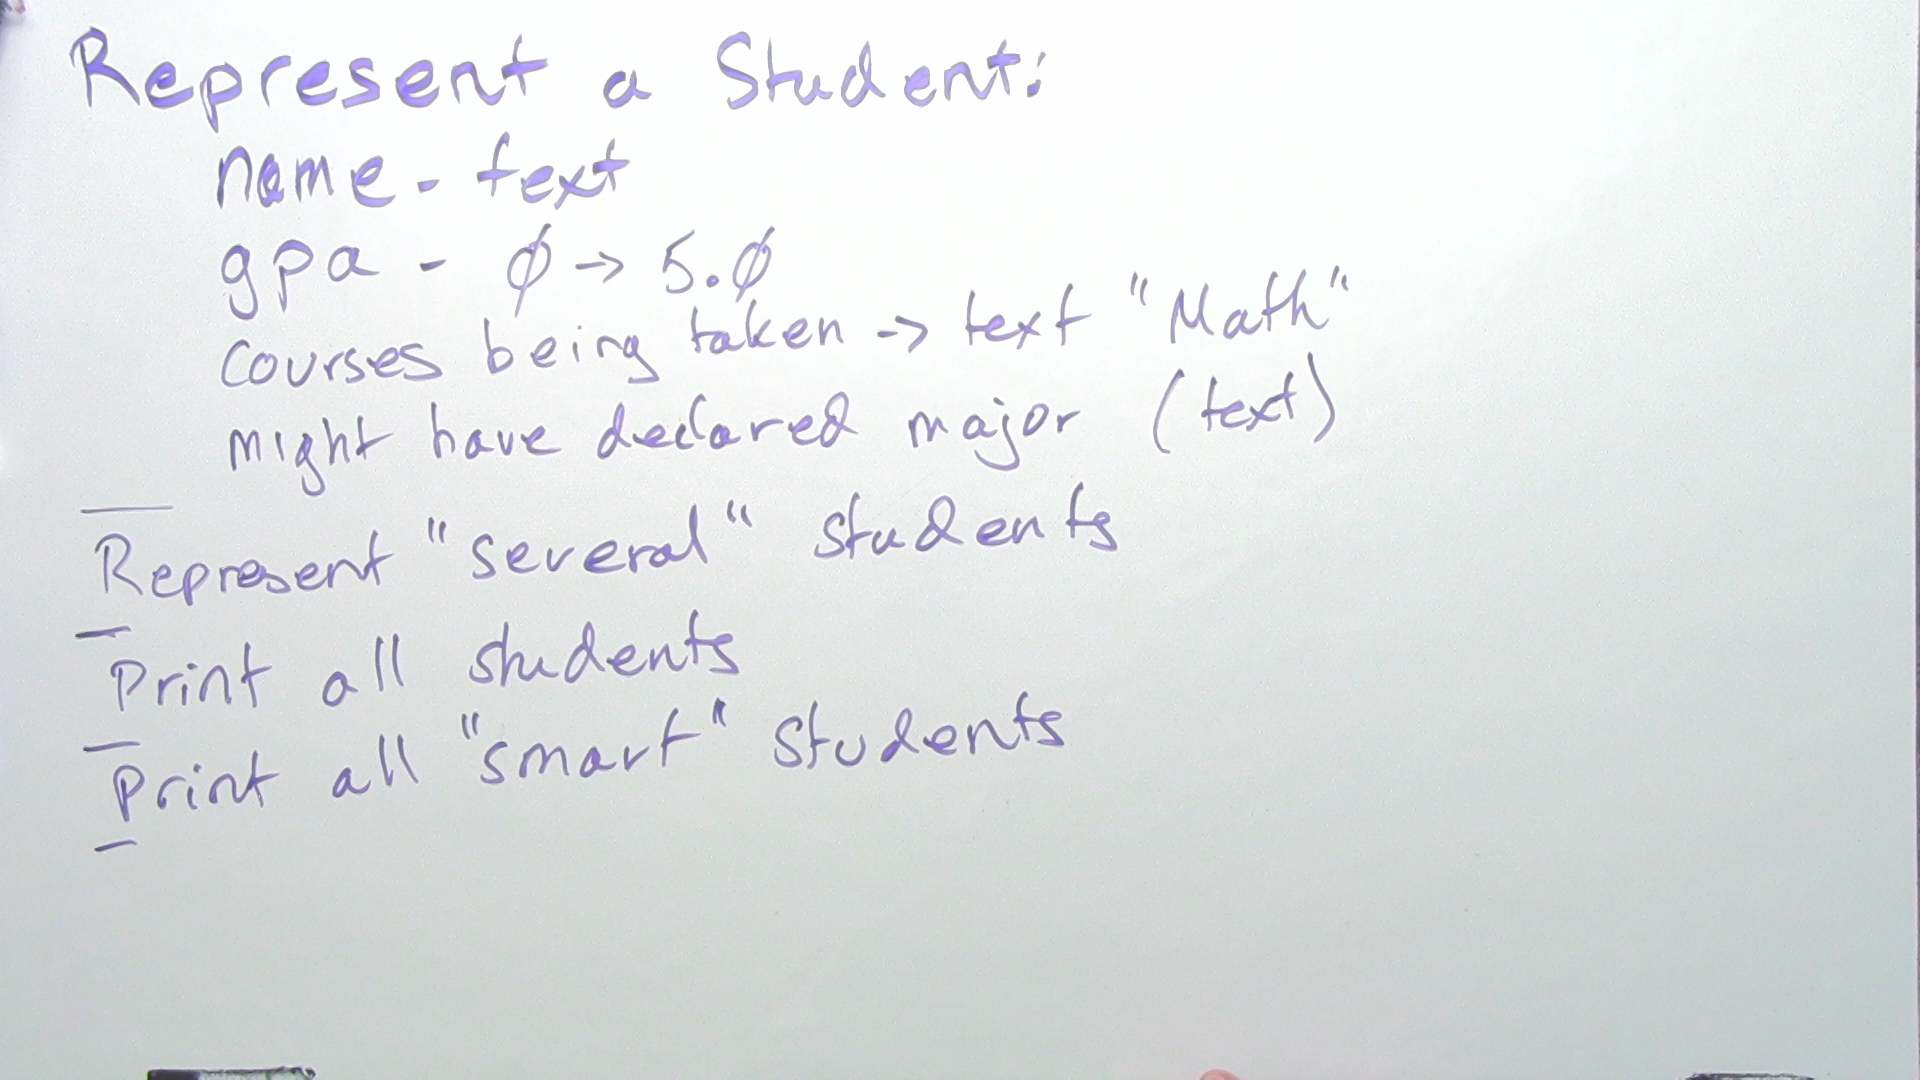 Represent a Student:
name - text
gpa - 0 → 5.0
courses being taken -> text "Math"
might have declared major (text)
Represent "several" students
Print all students
Print all "smart" students